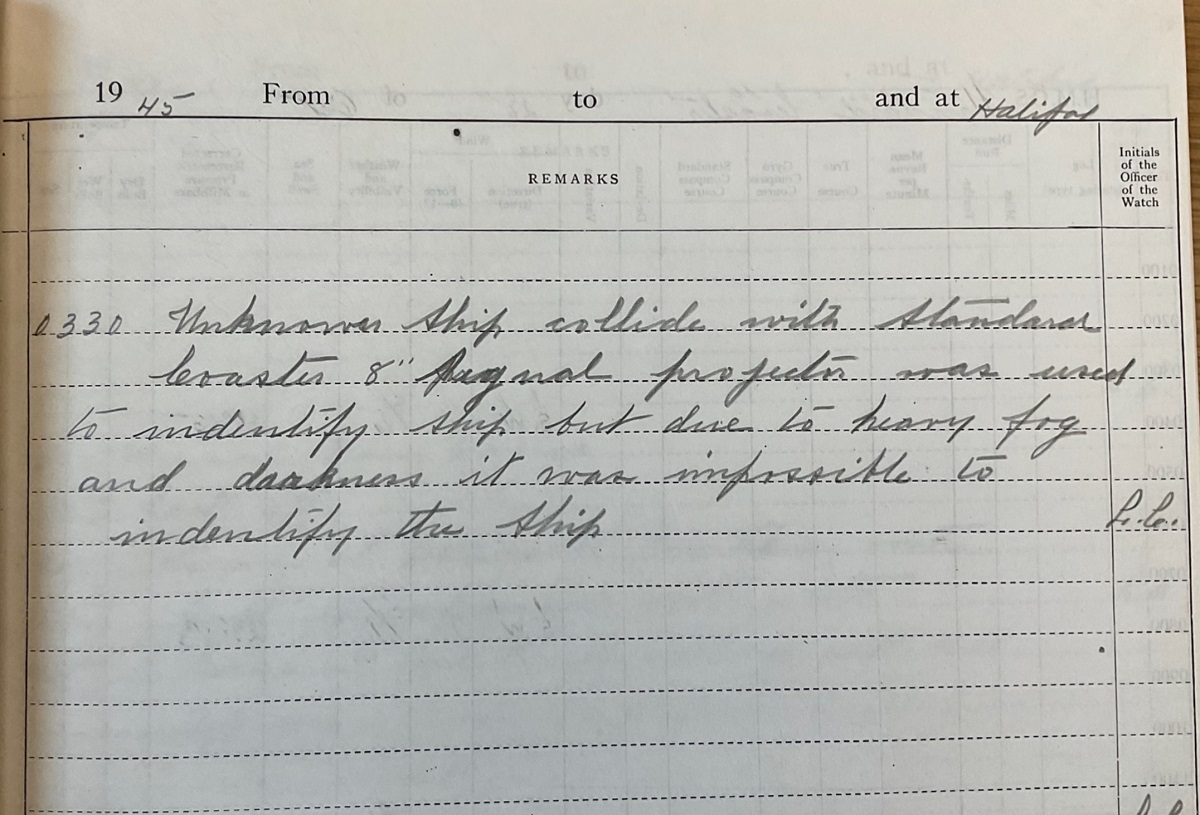 1945 From to and at Halifax
REMARKS
Initials of the Officer of the Watch
0330 Unknown Ship collide with Standard
Coaster 8" Signal projector was used
to indentify ship but due to heavy fog
and darkness it was impossible to
indentify the Ship